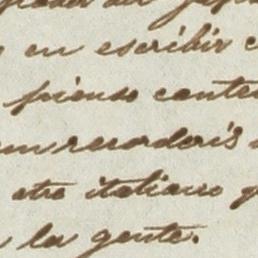 en escribir
pienso conte
recorderis
otro italiano
la gente.